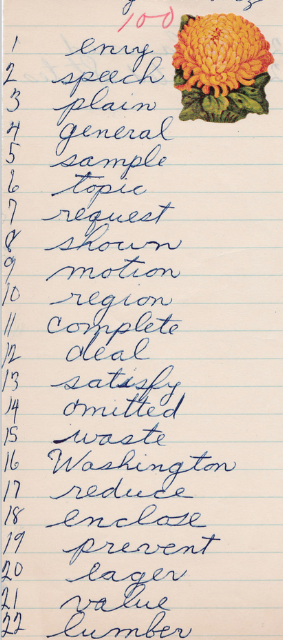 100
1 envy
2 speech
3 plain
4 general
5 sample
6 topic
7 request
8 shown
9 motion
10 region
11 complete
12 deal
13 satisfy
14 omitted
15 waste
16 Washington
17 reduce
18 enclose
19 prevent
20 eager
21 value
22 lumber